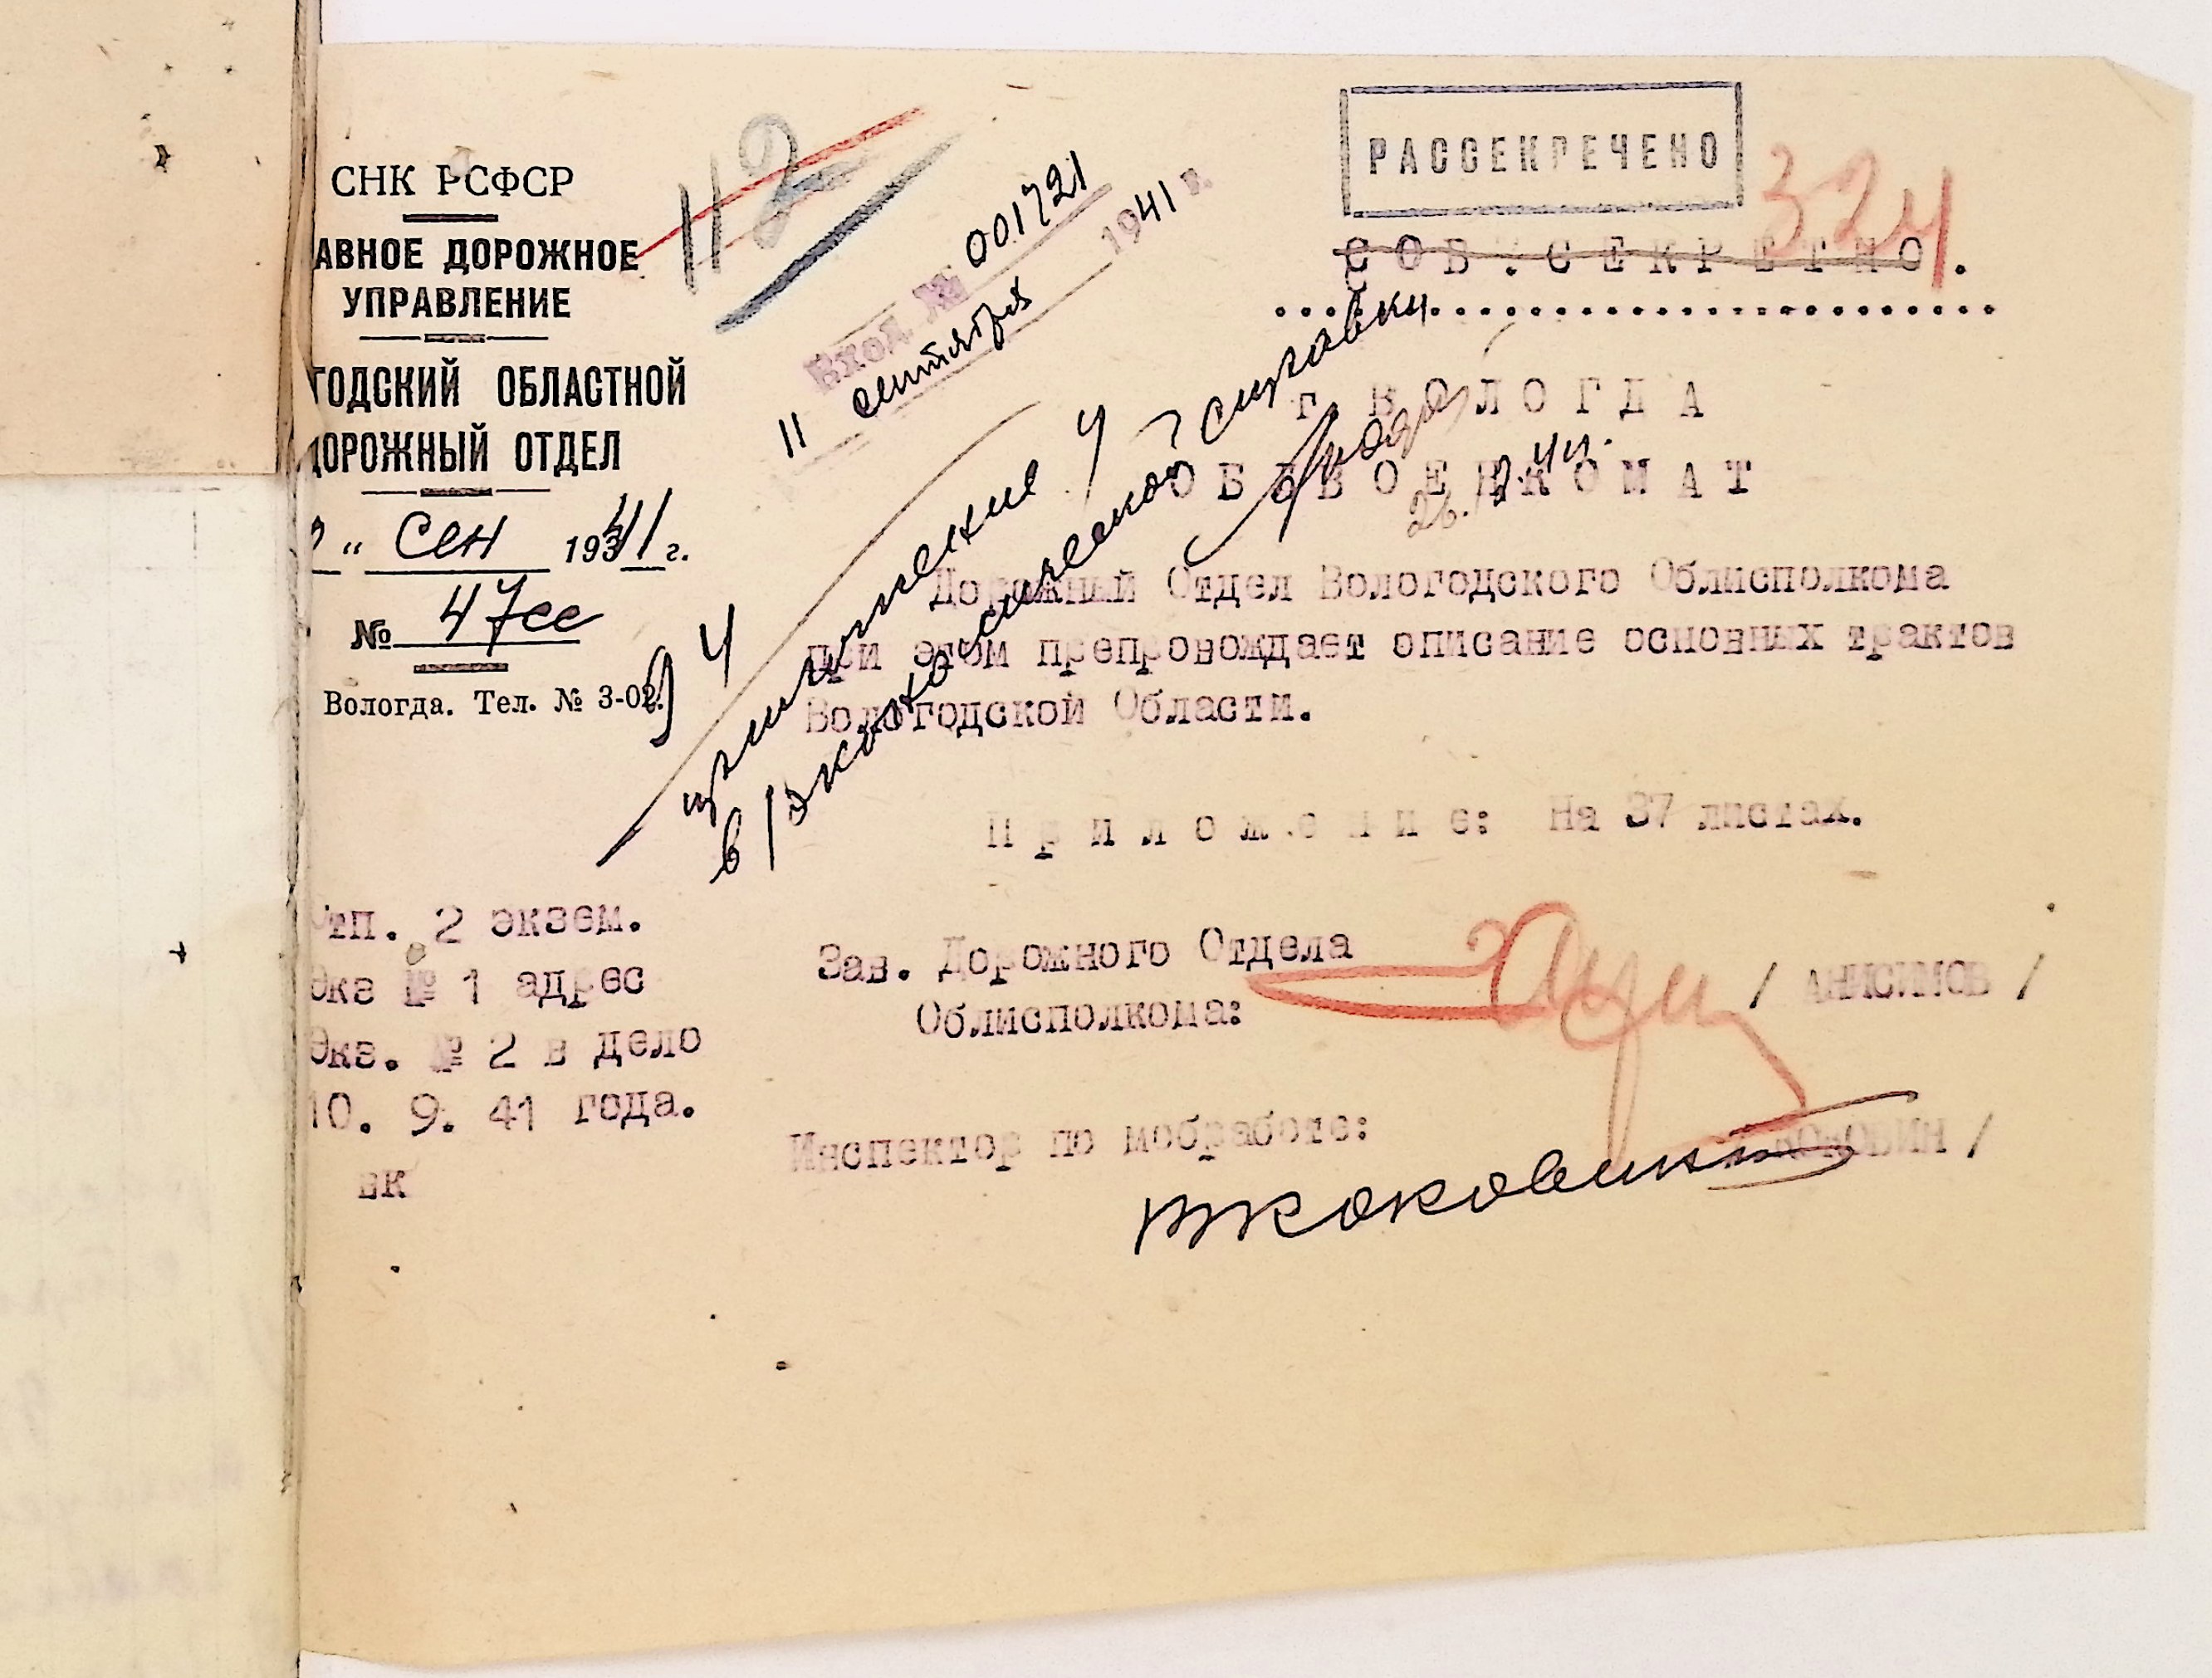 СНК РСФСР
АВНОЕ ДОРОЖНОЕ
УПРАВЛЕНИЕ
ГОДСКИЙ ОБЛАСТНОЙ
ДОРОЖНЫЙ ОТДЕЛ
" Сен 1941 г.
№ 47сс
Вологда. Тел. № 3-02.
112
Вход. № 001721
11 сентября 1941 г.
РАССЕКРЕЧЕНО
324
СОВ. СЕКРЕТНО.
г ВОЛОГДА
ОБЛВОЕНКОМАТ
приложение
в экономической справки
Дорожный Отдел Вологодского Облисполкома
при этом препровождает описание основных трактов
Вологодской Области.
Приложение: На 37 листах.
Отп. 2 экзем.
Экз № 1 адрес
Экз. № 2 в дело
10. 9. 41 года.
вк
Зав. Дорожного Отдела
Облисполкома: / АНИСИМОВ /
Инспектор по мобработе: КОКОВИН /
ВКоковин